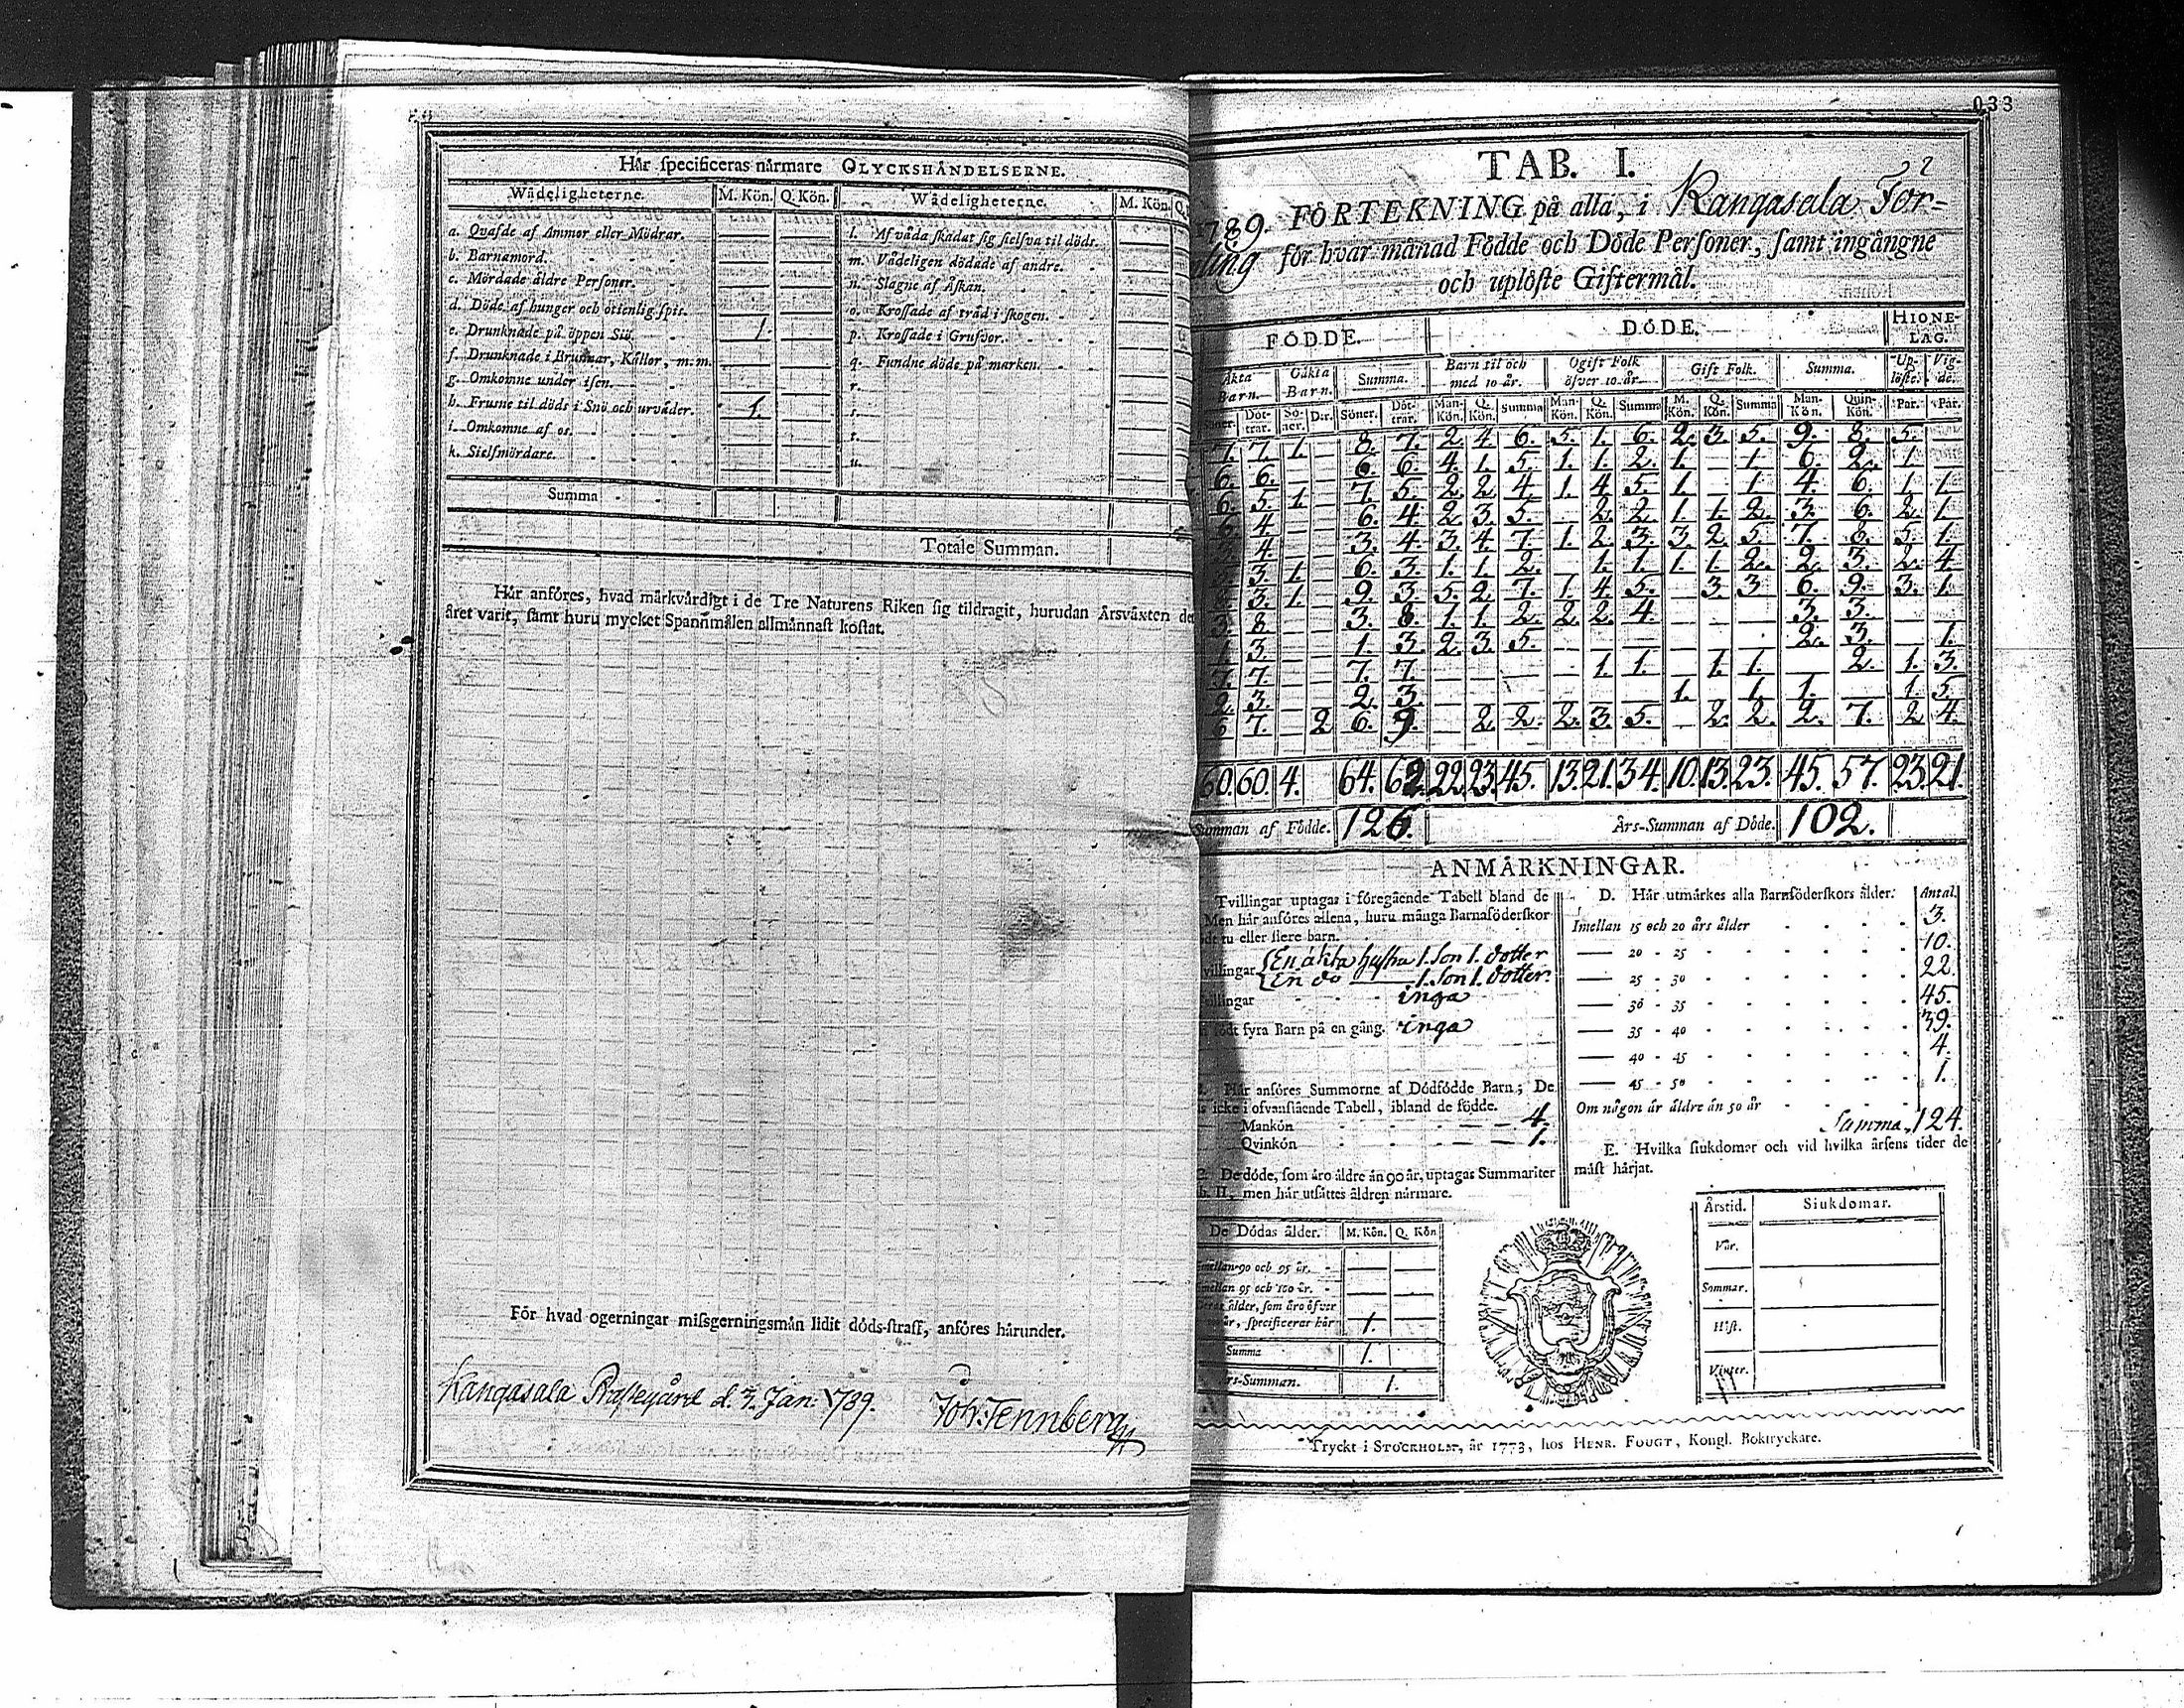 Hår specificeras nårmare OLYCKSHÅNDELSERNE.
Wådeligheterne. M. Kön. Q. Kön. Wådeligheterne. M. Kön. Q.
a. Qvafde af Ammor eller Mödrar.
b. Barnamord.
c. Mördade åldre Personer.
d. Döde af hunger och otienlig spis.
e. Drunknade på öppen Siö. 1.
f. Drunknade i Brunnar, Kållor, m. m.
g. Omkomne under isen.
h. Frusne til döds i Snö och urvåder. 1.
i. Omkomne af os.
k. Sielfmördare.
Summa
l. Af våda skadat sig sielfva til döds.
m. Vådeligen dödade af andre.
n. Slagne af Åskan.
o. Krossade af tråd i skogen.
p. Krossade i Grufvor.
q. Fundne döde på marken.
r.
s.
t.
u.
Totale Summan.
Hår anföres, hvad mårkvårdigt i de Tre Naturens Riken sig tildragit, hurudan Årsvåxten det
året varit, samt huru mycket Spannmålen allmånnast kostat.
För hvad ogerningar missgerningsmån lidit döds-straff, anföres hårunder.
Kangasala Prästegård d. Jan: 1789. Joh: Tennberg
033
TAB. I.
1789. FÖRTEKNING på alla, i Kangasala För=
ling för hvar månad Födde och Döde Personer, samt ingångne
och uplöste Giftermål.
FÖDDE. DÖDE. HIONE-LAG.
Åkta Barn. Oåkta Barn. Summa. Barn til och med 10 år. Ogift Folk öfver 10 år. Gift Folk. Summa. Up-löste. Vig-de.
Söner. Döt-trar. Sö-ner. D:r. Söner. Döt-trar. Man-Kön. Q. Kön. Summa Man-Kön. Q. Kön. Summa M. Kön. Q. Kön. Summa Man-Kön. Quin-Kön. Par. Par.
7. 7. 1. — 8. 7. 2. 4. 6. 5. 1. 6. 2. 3. 5. 9. 8. 5. —
6. 6. — — 6. 6. 4. 1. 5. 1. 1. 2. 1. — 1. 6. 2. 1. —
6. 5. 1. — 7. 5. 2. 2. 4. 1. 4. 5. 1. — 1. 4. 6. 1. 1.
6. 4. — — 6. 4. 2. 3. 5. — 2. 2. 1. 1. 2. 3. 6. 2. 1.
3. 4. — — 3. 4. 3. 4. 7. 1. 2. 3. 3. 2. 5. 7. 8. 5. 1.
3. 1. — 6. 3. 1. 1. 2. — 1. 1. 1. 1. 2. 2. 3. 2. 4.
3. 1. — 9. 3. 5. 2. 7. 1. 4. 5. — 3. 3. 6. 9. 3. 1.
3. 8. — — 3. 8. 1. 1. 2. 2. 2. 4. — — — 3. 3. — —
1. 3. — — 1. 3. 2. 3. 5. — — — — — — 2. 3. — 1.
7. 7. — — 7. 7. — — — — 1. 1. — 1. 1. — 2. 1. 3.
2. 3. — — 2. 3. — — — — — — 1. — 1. 1. — 1. 5.
6. 7. 2 6. 9. — 2. 2. 2. 3. 5. — 2. 2. 2. 7. 2. 4.
60. 60. 4. 64. 62. 22. 23. 45. 13. 21. 34. 10. 13. 23. 45. 57. 23. 21.
Summan af Födde. 126. Års-Summan af Döde. 102.
ANMÅRKNINGAR.
Tvillingar uptagas i föregående Tabell bland de
Men hår anföres allena, huru många Barnaföderskor
födt tu eller flere barn.
villingar {En åkta hustru 1. Son 1. dotter
{En do 1. Son 1. dotter.
illingar inga
födt fyra Barn på en gång. inga
Hår anföres Summorne af Dödfödde Barn; De
icke i ofvanstående Tabell, ibland de födde.
Mankön 4.
Qvinkön 1.
De döde, som åro åldre ån 90 år, uptagas Summariter
b. II. men hår utsåttes åldren nårmare.
De Dödas ålder. M. Kön. Q. Kön
mellan 90 och 95 år.
mellan 95 och 100 år.
ålder, som åro öfver
år, specificeras hår 1.
Summa 1.
rs-Summan. 1.
D. Hår utmårkes alla Barnföderskors ålder. Antal.
Imellan 15 och 20 års ålder 3.
— 20 - 25 10.
— 25 - 30 22.
— 30 - 35 45.
— 35 - 40 39.
— 40 - 45 4.
— 45 - 50 1.
Om någon år åldre ån 50 år
Summa, 124.
E. Hvilka siukdomar och vid hvilka årsens tider de
måst hårjat.
Årstid. Siukdomar.
Vår.
Sommar.
Höst.
Vinter.
Tryckt i STOCKHOLM, år 1773, hos HENR. FOUGT, Kongl. Boktryckare.